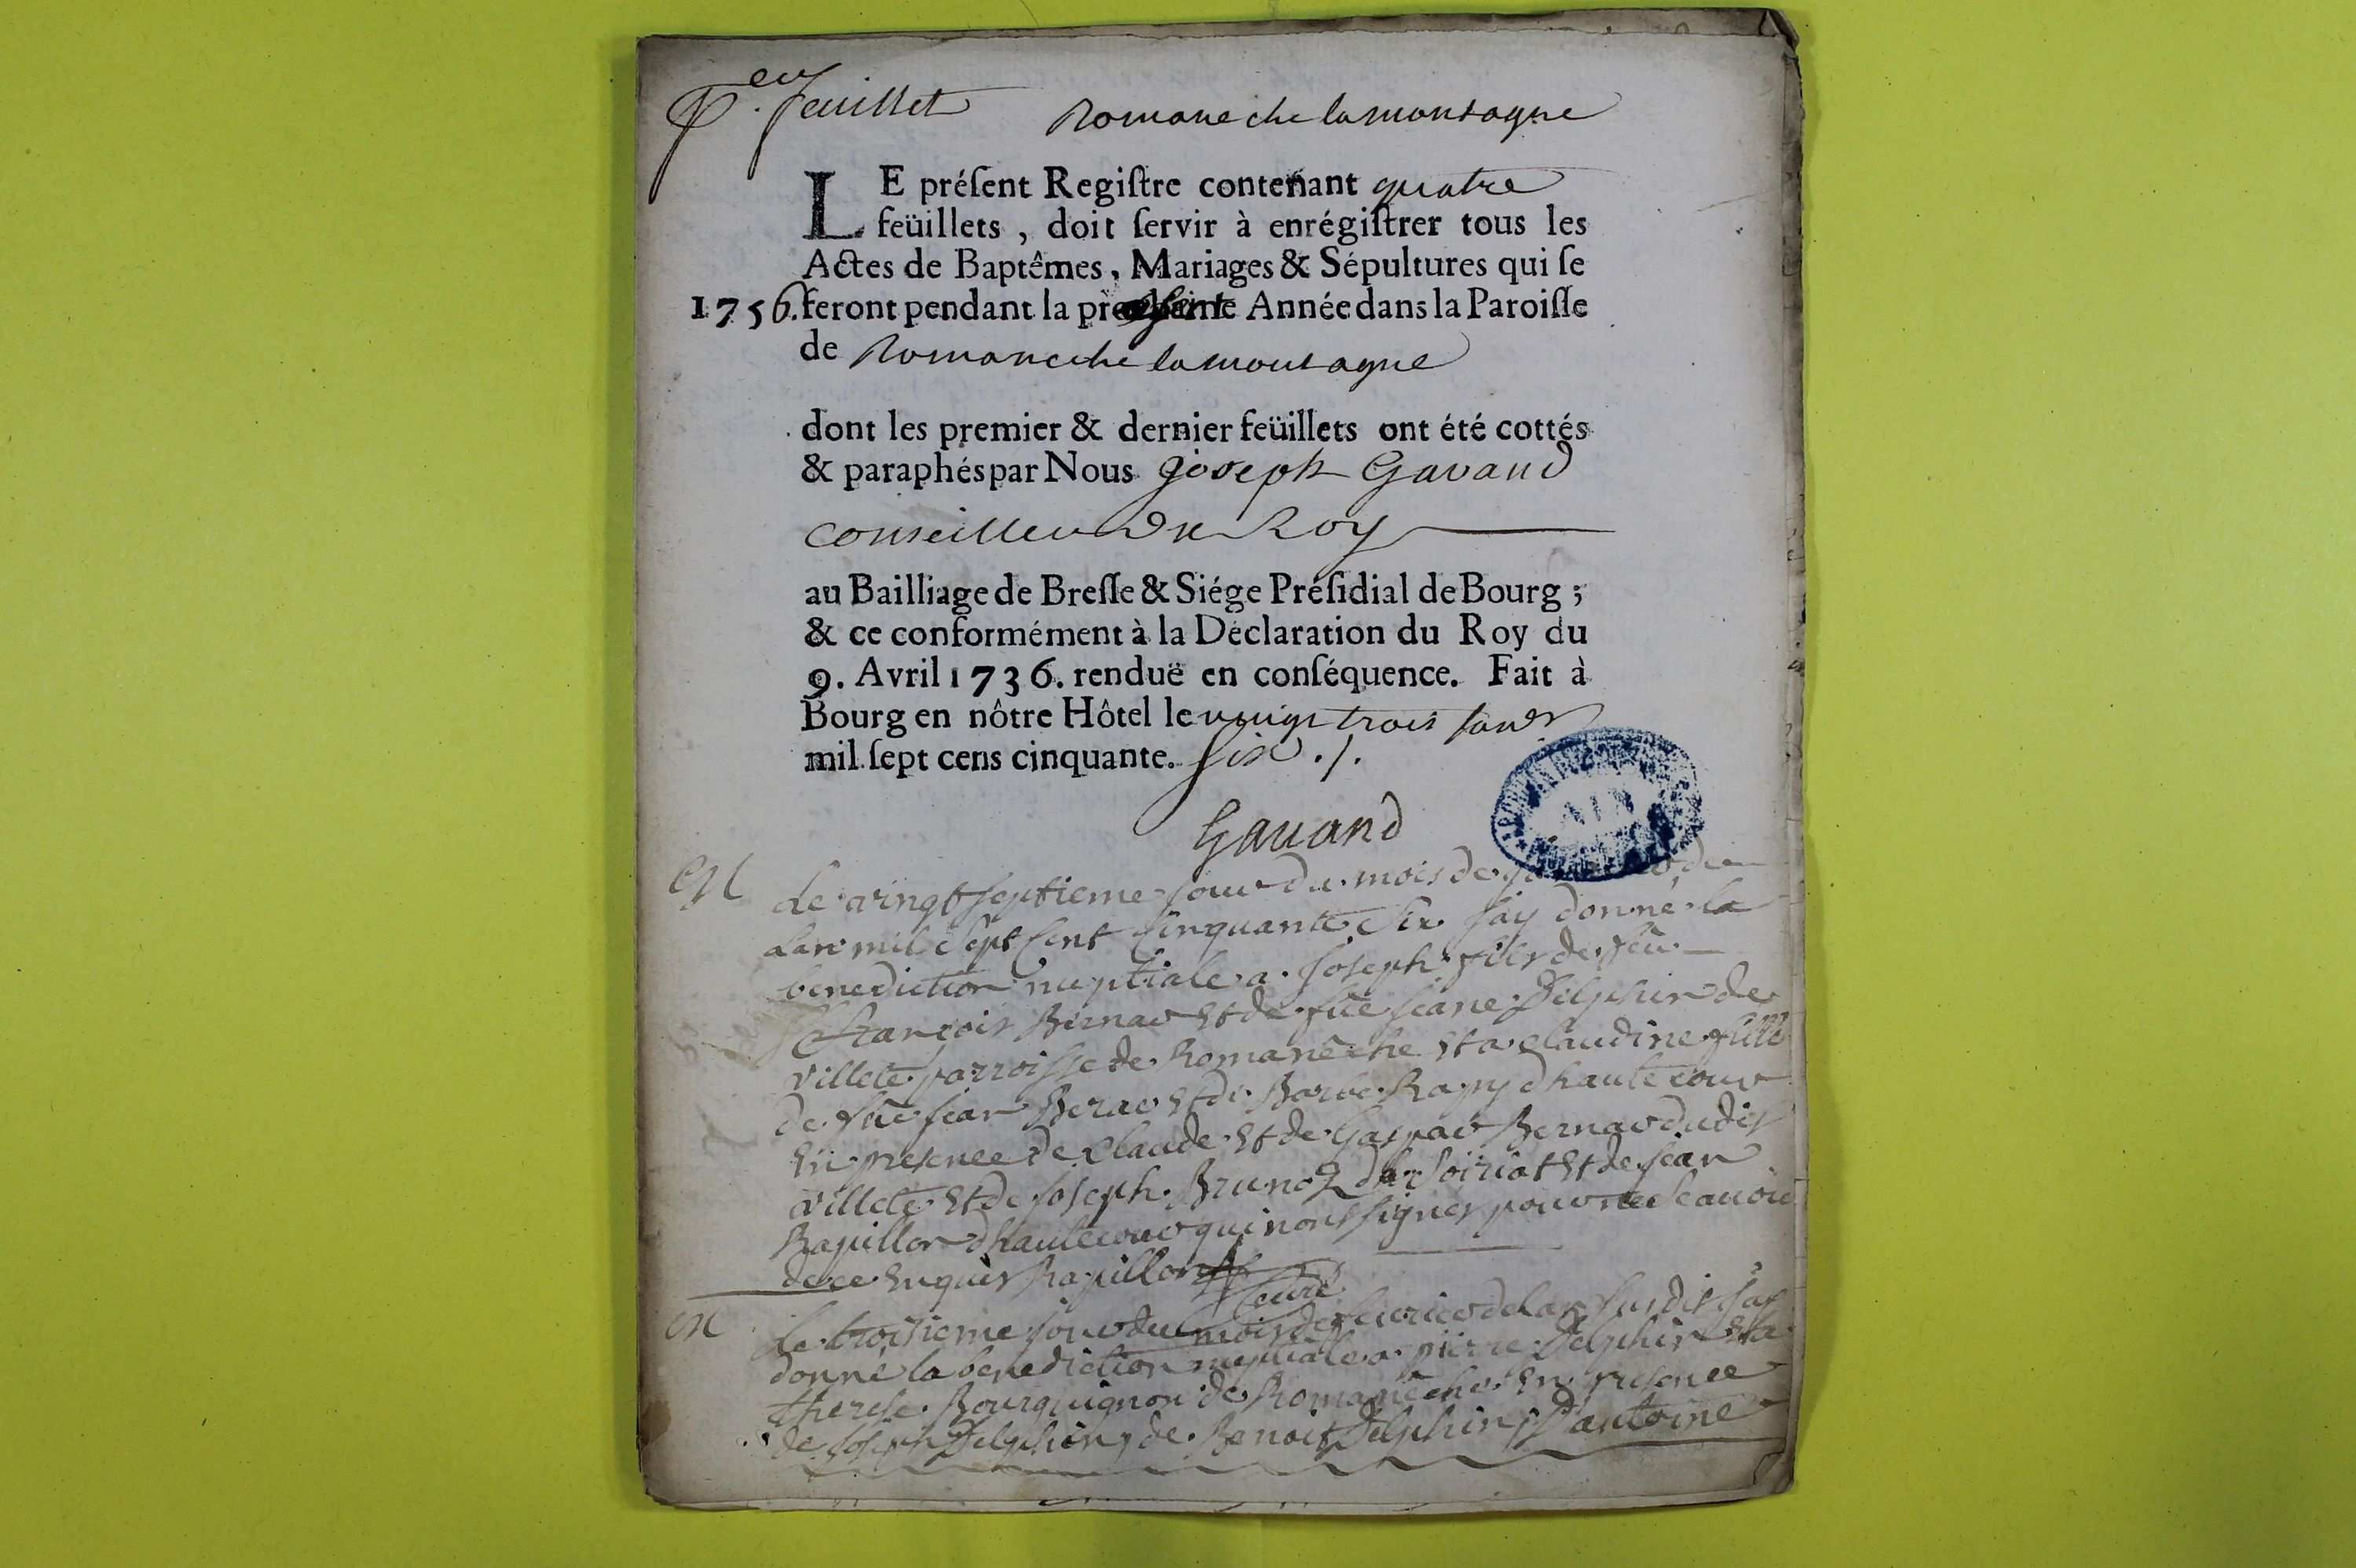 P.er feuillet
Romaneche lamontagne
LE préſent Regiſtre contenant quatre
feüillets, doit ſervir à enrégiſtrer tous les
Actes de Baptêmes, Mariages & Sépultures qui ſe
1756. feront pendant la preſente Année dans la Paroiſſe
de Romaneche lamontagne
dont les premier & dernier feüillets ont été cottés
& paraphés par Nous joseph Gavand
Conseiller du Roy
au Bailliage de Breſſe & Siége Préſidial de Bourg ;
& ce conformément à la Déclaration du Roy du
9. Avril 1736. renduë en conſéquence. Fait à
Bourg en nôtre Hôtel le vingt trois janvr
mil ſept cens cinquante. six ./.
Gavand
AIN
M
Le vingt septieme jour du mois de de
lan mil sept cent cinquante six jay donné la
benediction nuptiale a joseph fils de feu
francois Bernar et de fue jeane Delphin de
villete parroisse de Romanêche et a claudine fille
de feu jean et de Barbe Rapy dhautecour
en presence de claude et de Gaspar Bernar dudit
villete et de joseph Brunoz de Soiriat et de jean
Rapillon dhautecour qui nont signes pour ne scavoir
de ce enquis Rapillon
Curé
M
Le troisieme jour du mois de fevrier de lan susdit jay
donné la benediction nuptiale a pierre Delphin et a
therese Bourguignon de Romanêche en presence
de joseph Delphin, de Benoit Delphin, d'antoine